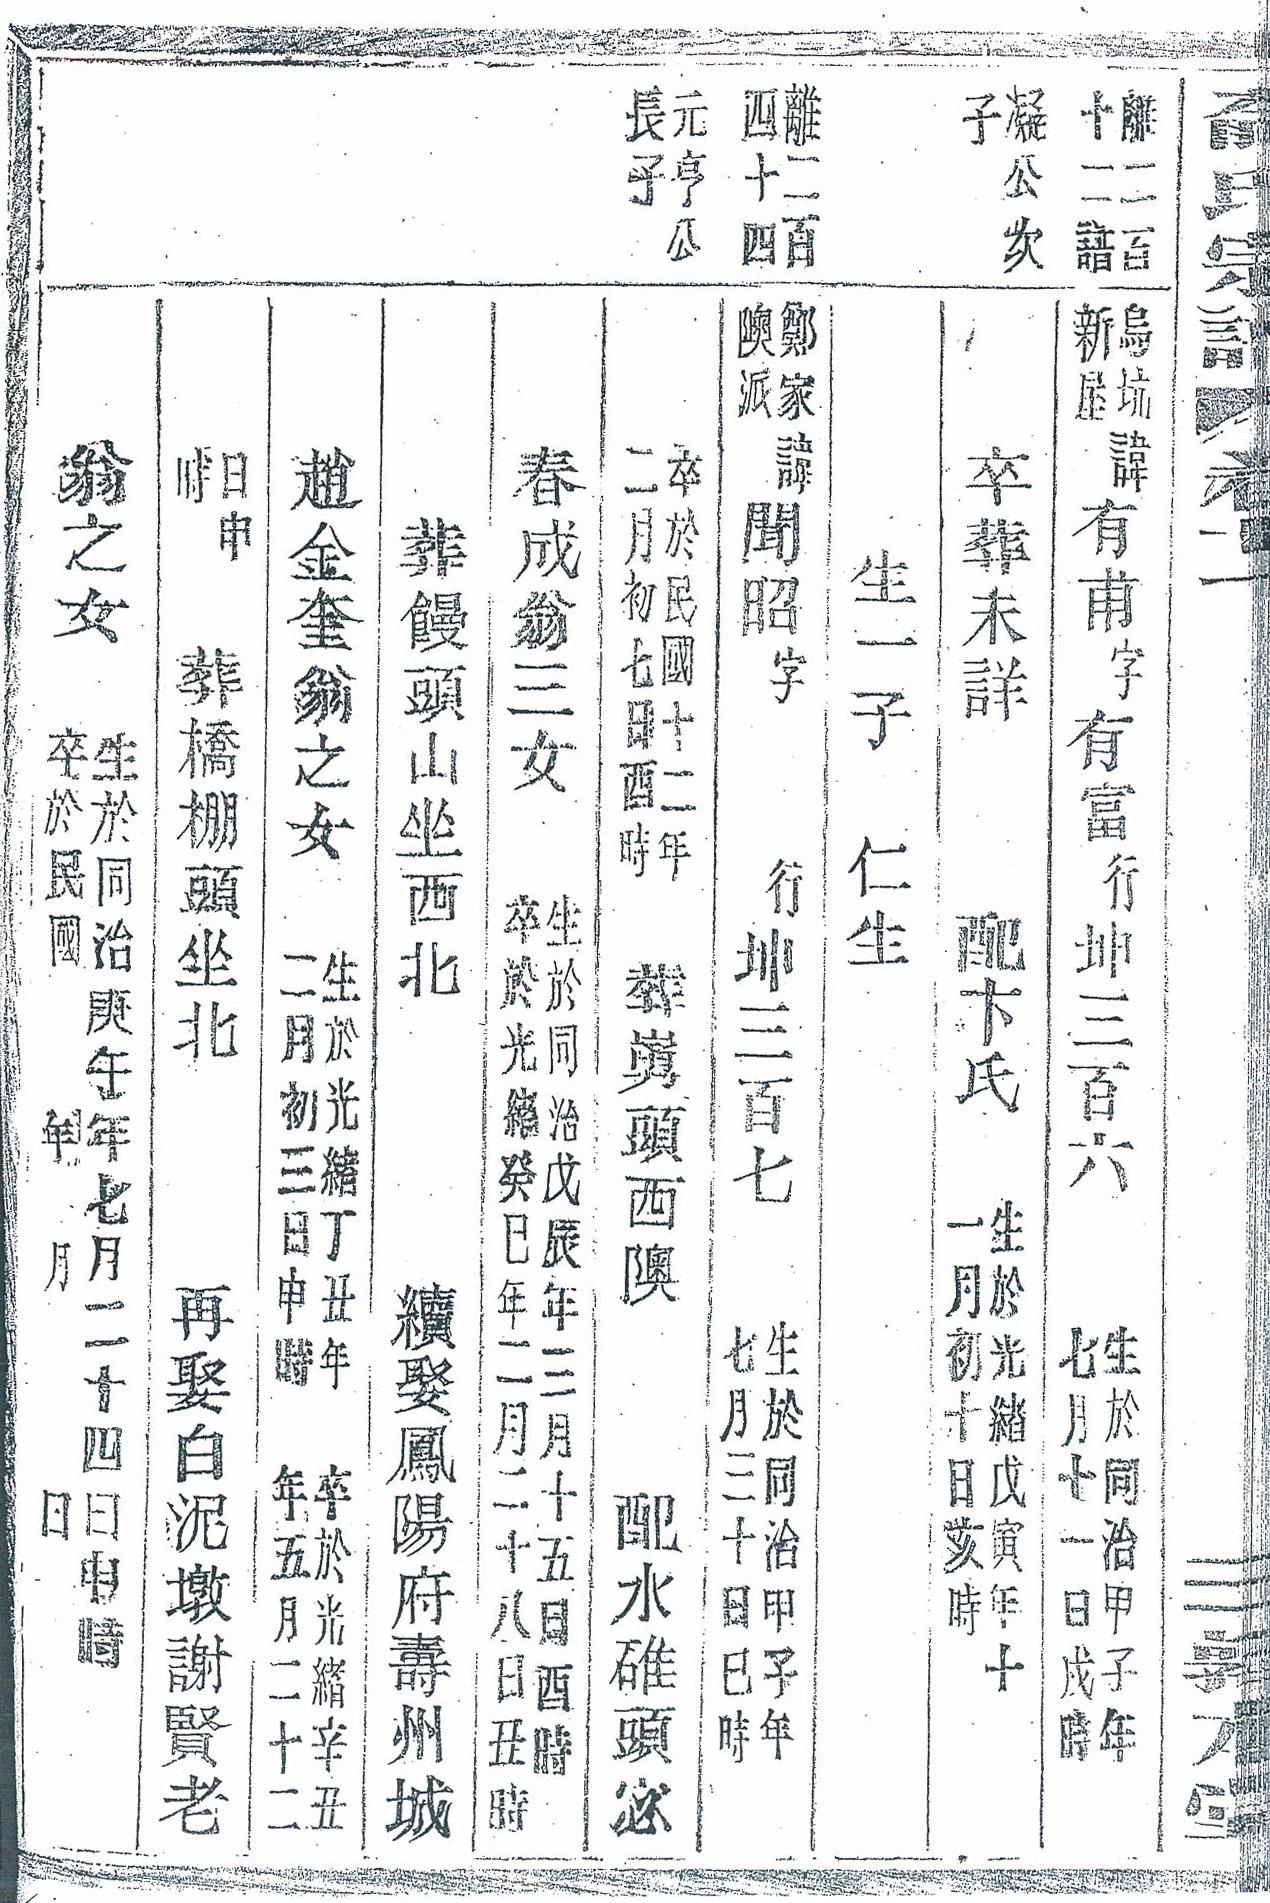 氏宗譜 卷
離二百
十二諳
凝公次
子
離二百
四十四
元亨公
長子
烏坑
新屋
諱有甫字有富行坤三百六
生於同治甲子年
七月十一日戌時
卒葬未詳 配卞氏
生於光緒戊寅年十
一月初十日亥時
生一子 仁生
鄭家
隩派
諱聞昭字 行坤三百七
生於同治甲子年
七月三十日巳時
卒於民國十二年
二月初七日酉時
葬嶴頭西隩 配水碓頭宓
春成翁三女
生於同治戊辰年三月十五日酉時
卒於光緒癸巳年二月二十八日丑時
葬饅頭山坐西北 續娶鳳陽府壽州城
趙金奎翁之女
生於光緒丁丑年
二月初三日申時
卒於光緒辛丑
年五月二十二
日申
時
葬橋棚頭坐北 再娶白泥墩謝賢老
翁之女
生於同治庚午年七月二十四日申時
卒於民國 年 月 日